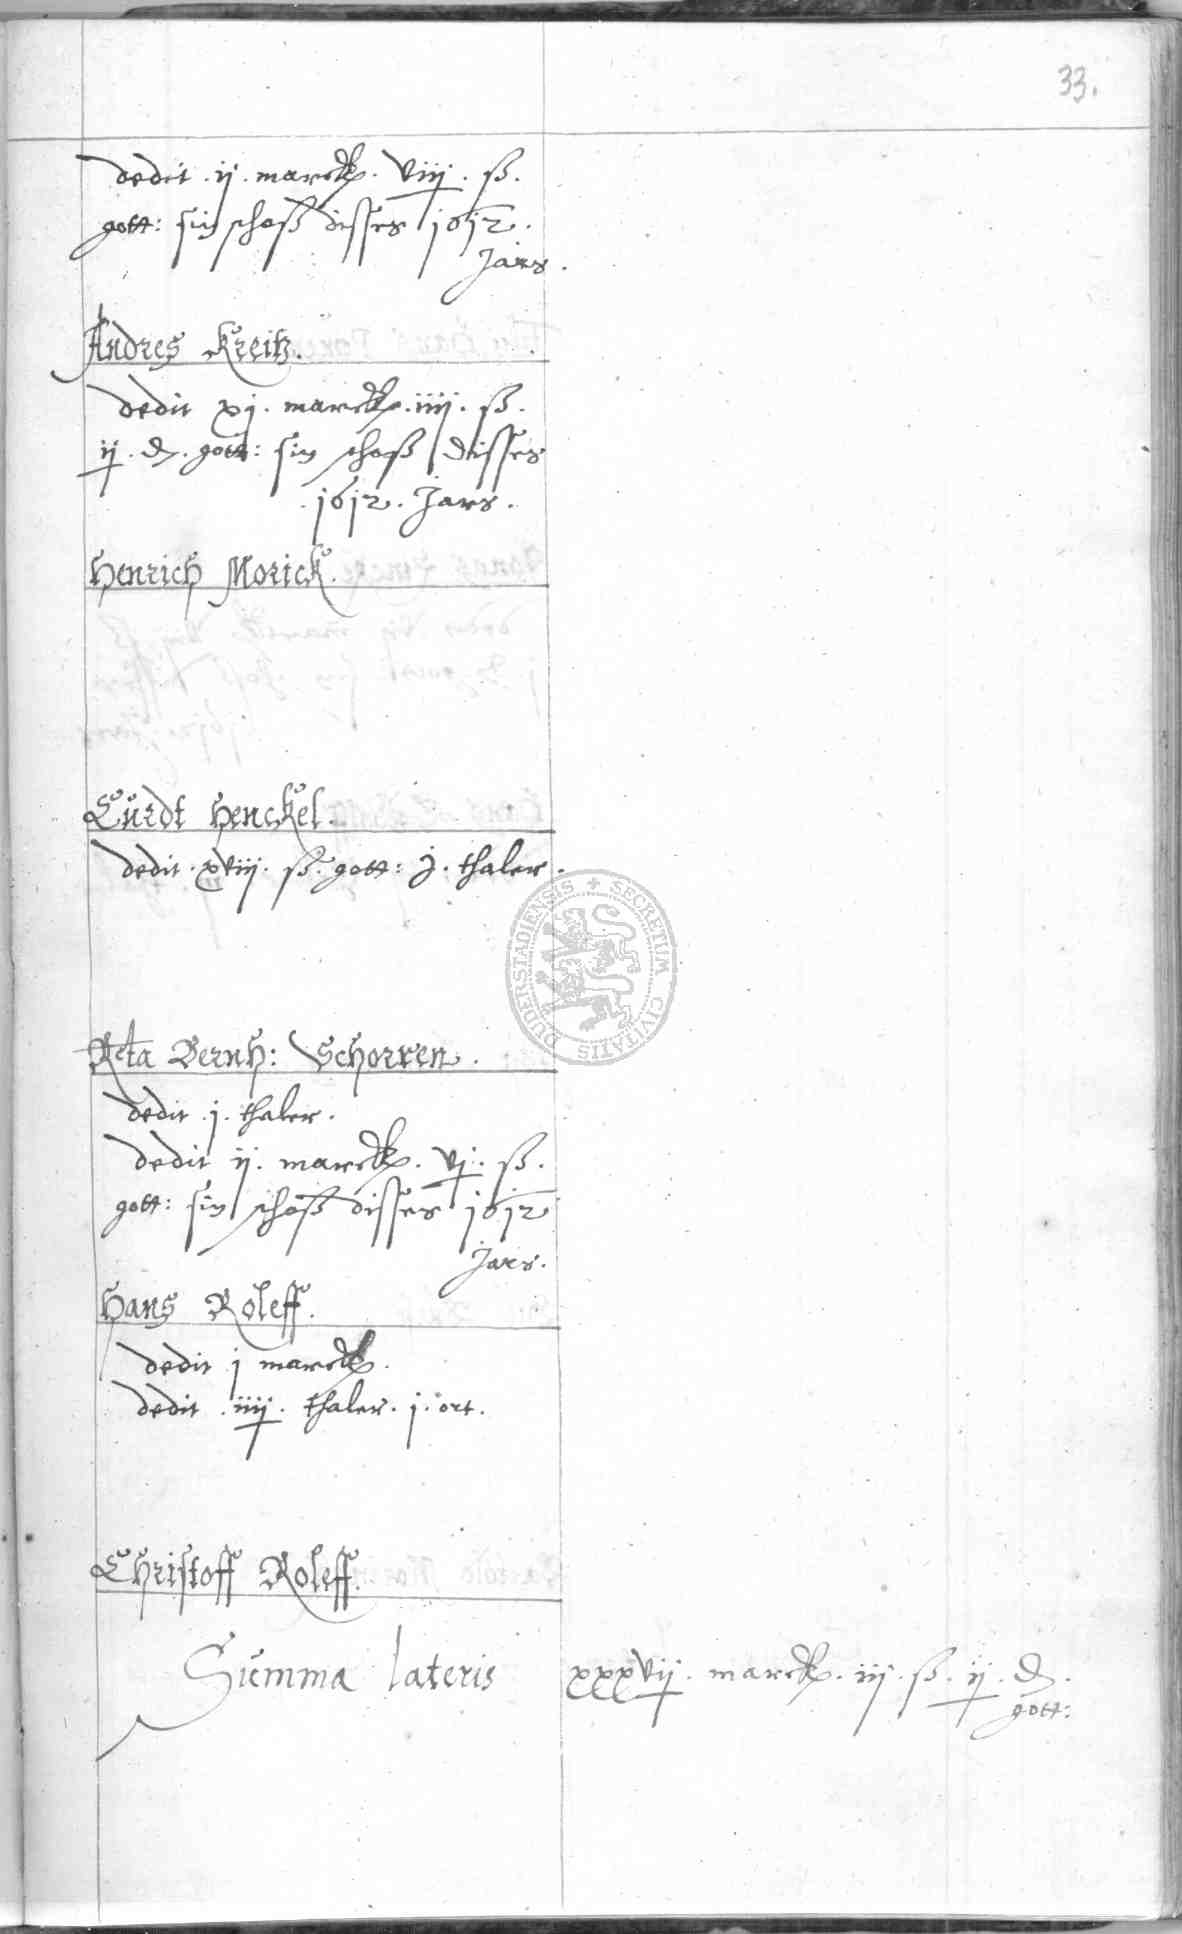 33.
dedit . ij . marck . viij . ß .
gott : sin schoß disses 1612 .
Jars .
Andres Kreitz .
dedit xj . marck . iiij . ß .
ij . d . gott : sin schoß disses
. 1612 . Jars .
Henrich Morick .
Curdt Henckel .
dedit . xviij . ß . gott : j . thaler .
Relicta Bernh : Schorren .
dedit . j . thaler .
dedit ij . marck . vj . ß .
gott : sin schoß disses 1612
Jars .
Hans Roleff .
dedit j marck .
dedit . iiij . thaler . j . ort .
Christoff Roleff .
Summa lateris xxxvij . marck . iij . ß . ij . d .
gott :
SECRETUM CIVITATIS DUDERSTADIENSIS